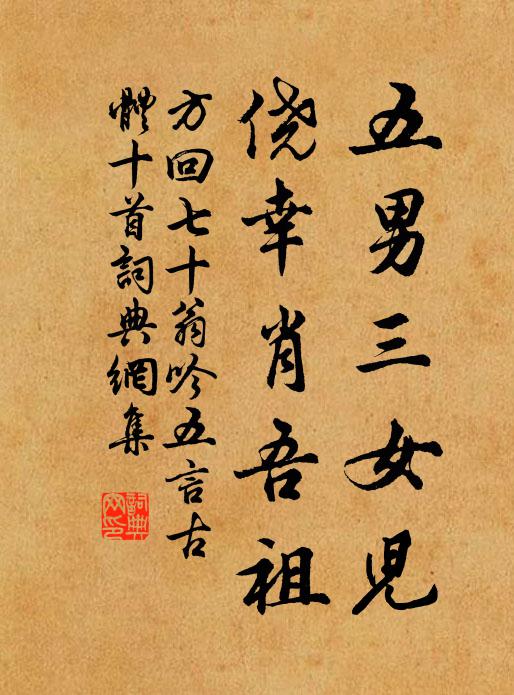 五男三女兒
僥幸肖吾祖
方回七十翁吟五言古
體十首詞典網集
詞典网印